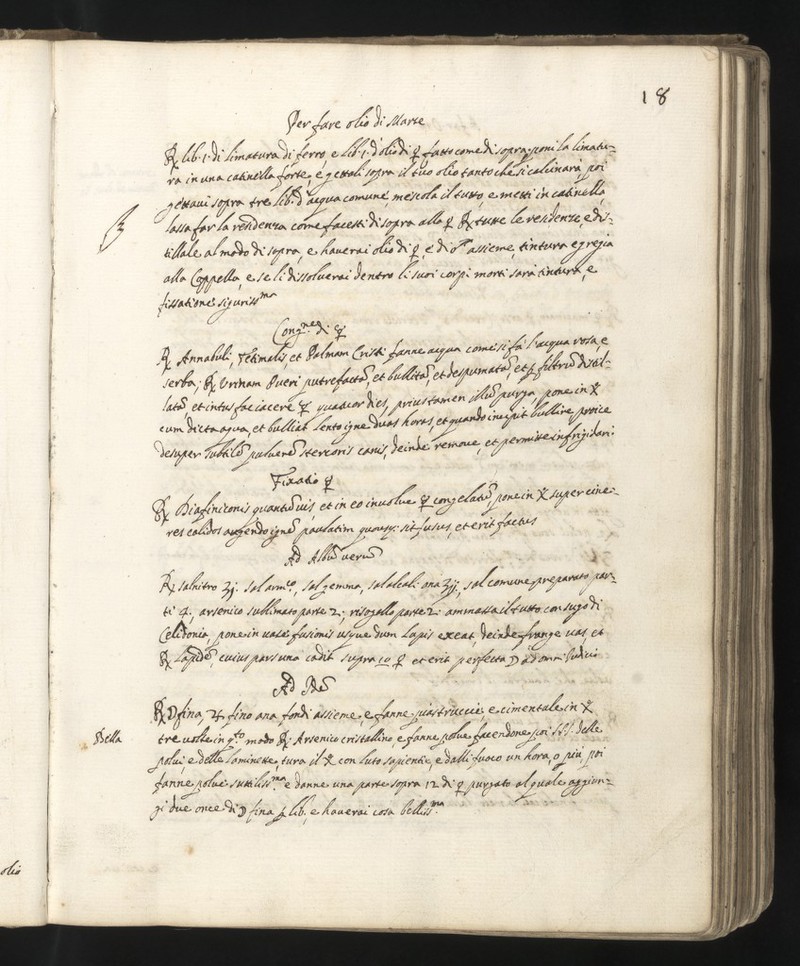 18
Per fare olio di Marte
℞ lib. 1. di limatura di ferro, e lib. 1. d'olio di ♀ fatto come di sopra, poni la limatu=
ra in una catinella forte, e gettali sopra il tuo olio tanto che si calcinarà, poi
gettavi sopra tre lib. d'acqua comune, mescola il tutto, e metti in catinella,
lassa far la residenza come facesti di sopra alla ♀ ℞ tutte le residenze, e dis=
tillale al modo di sopra, e haverai olio di ♀, e di assieme, tintura egregia
alla Coppella, e se li dissolverai dentro li suoi corpi morti sarà tintura, e
fissatione siguriss.ma
Cong.ne di ☿
℞ Annabuli, et Palmam Cristi fanne acqua come si fà l'acqua rosa, e
serba; ℞ Urinam Pueri putrefactã, et bullitã, et despumatã, et p filtrũ distil=
latã, et intus fac iacere ☿ quatuor dies, prius tamen illũ purga, pone in
cum dicta aqua, et bulliat lento igne duas horas, et quando incipit bullire proice
desuper subtilẽ pulverẽ stercoris canis, deinde remove, et permitte infrigidari
Fixatio ☿
℞ Diafiniconis quantũ vis, et in eo involve ☿ congelatũ, pone in super cine=
res calidos augendo ignẽ paulatim quousq; sit fusus, et erit factus
Ad Albũ verũ
℞ salnitro ʒj. sal arm.co, sal gemma, sal alcali ana ʒij., sal comune preparato par=
ti 4., arsenico sullimato parte 2., risogallo parte 2. ammassa il tutto con sugo di
Celidonia, pone in vase fusionis usque dum lapis exeat, deinde frange vas, et
℞ Lapidẽ, cuius pars una cadit supra 10 ☿ et erit perfecta ☽ ad omne Iudiciũ
Ad
Bella
℞ ☽ fina, ♃ fino ana fondi assieme, e fanne piastruccie e cimentale in
tre volte in q.to modo ℞ Arsenico cristallino e fanne polve facendone poi S.S.S. delle
polvi, e delle laminette, tura il con luto sapientie, e dalli fuoco un hora, o più, poi
fanne polve suttiliss.ma e danne una parte sopra 12 di ♀ purgato al quale aggion=
gi due once di ☽ fina p lib. e haverai cosa belliss.ma
olio